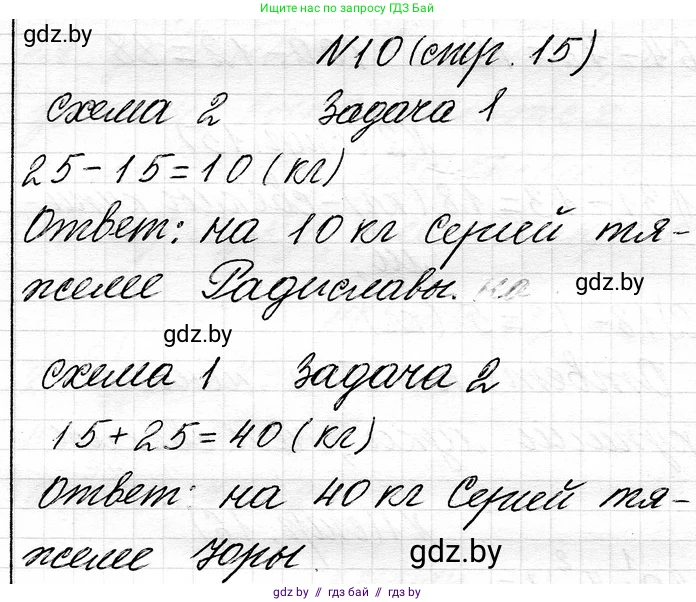 Ищите нас в поиске по запросу ГДЗ Бай
gdz.by
N10 (стр. 15)
схема 2 Задача 1
25-15=10 (кг)
Ответ: на 10 кг Сергей тя-
желее Радиславы. на
gdz.by
gdz.by
схема 1 Задача 2
15+25=40 (кг)
Ответ: на 40 кг Сергей тя-
желее Юры
gdz.by
gdz.by // гдз бай // gdz.by